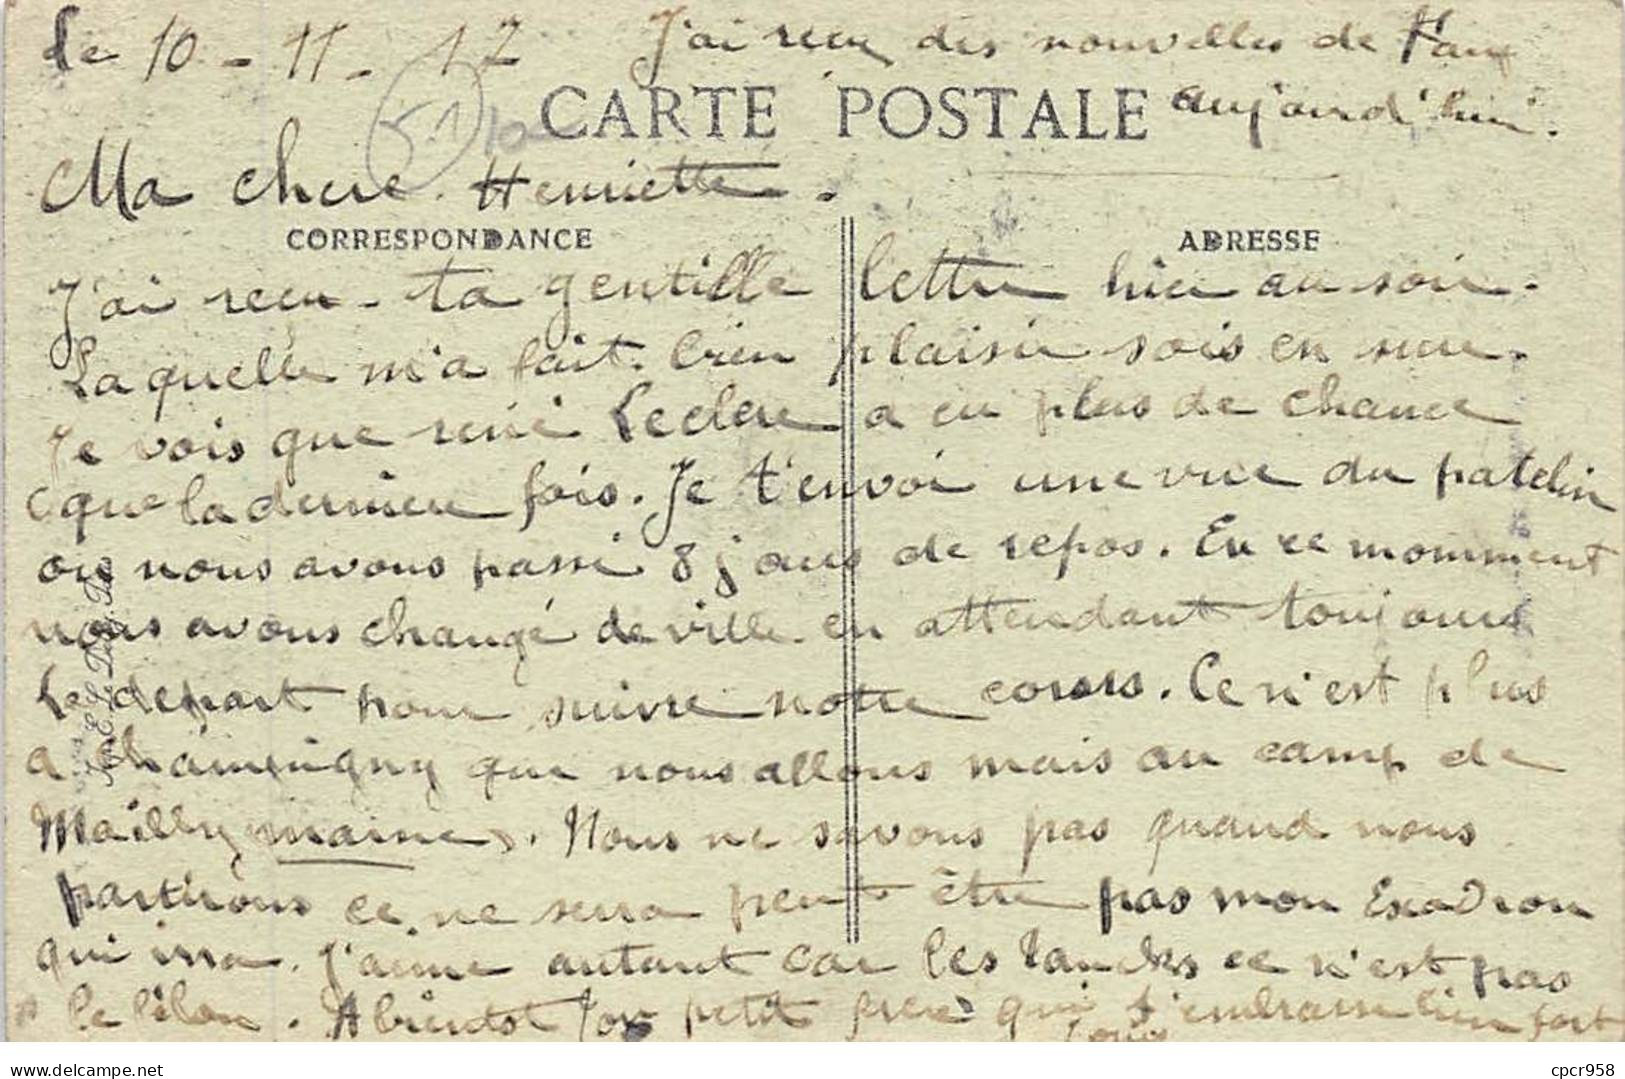 le 10 - 11 - 17 J'ai reçu des nouvelles de
aujourd'hui.
51
CARTE POSTALE
Ma chere Henriette.
CORRESPONDANCE
ADRESSE
J'ai reçu ta gentille lettre hier au soir.
Laquelle m'a fait bien plaisir sois en sure.
Je vois que réné Leclere a eu plus de chance
que la derniere fois. Je t'envoi une vue du patelin
ou nous avons passé 8 jours de repos. En ce momment
nous avons changé de ville en attendant toujours
Le depart pour suivre notre cours. Ce n'est plus
a Champigny que nous allons mais au camp de
Mailly marne). Nous ne savons pas quand nous
partirons ce ne sera peut être pas mon Escadron
qui ira. J'aime autant car les tancks ce n'est pas
le filon. A bientôt ton petit frere qui t'embrasse bien fort
Louis
My ebay name
cpcr958